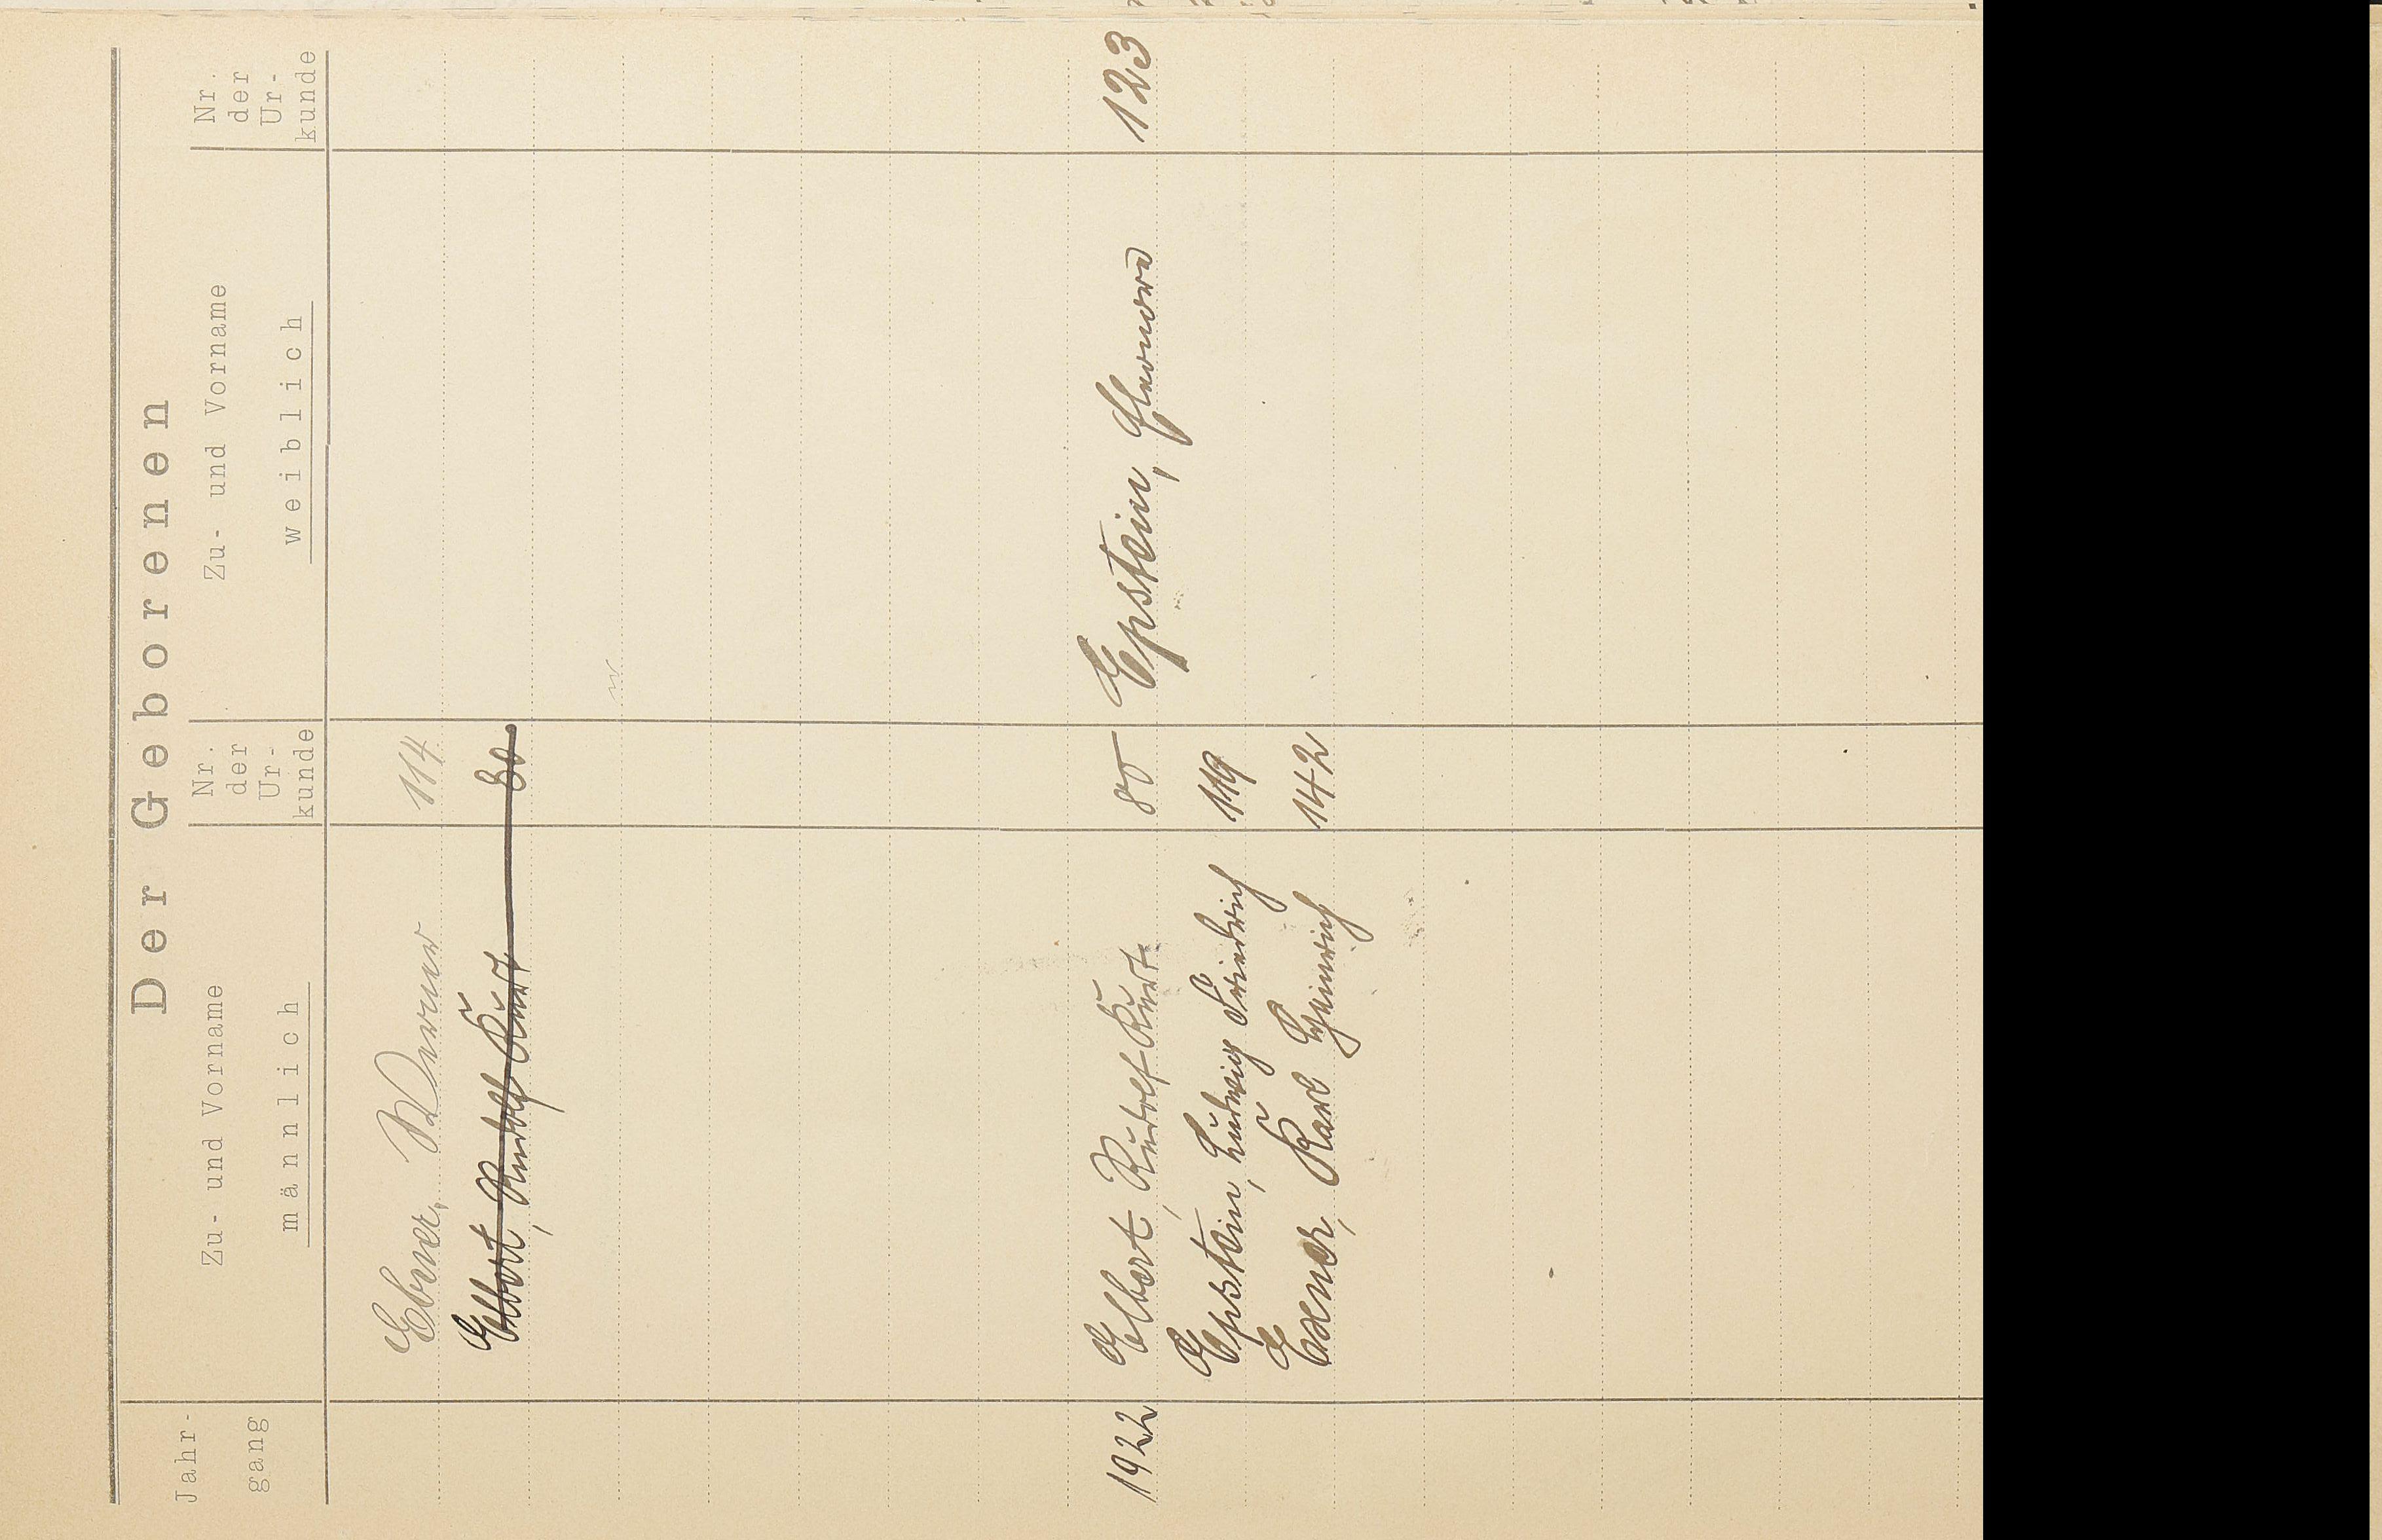 Der Geborenen
Jahr-
gang
Zu- und Vorname
männlich
Nr.
der
Ur-
kunde
Zu- und Vorname
weiblich
Nr.
der
Ur-
kunde
Ebner, Werner 114
Elbert, Rudolf Kurt 80
1922 Elbert, Rudolf Kurt 80 Epstein, Eleonora 123
Epstein, Ludwig Friedrich 119
Exner, Karl Heinrich 142